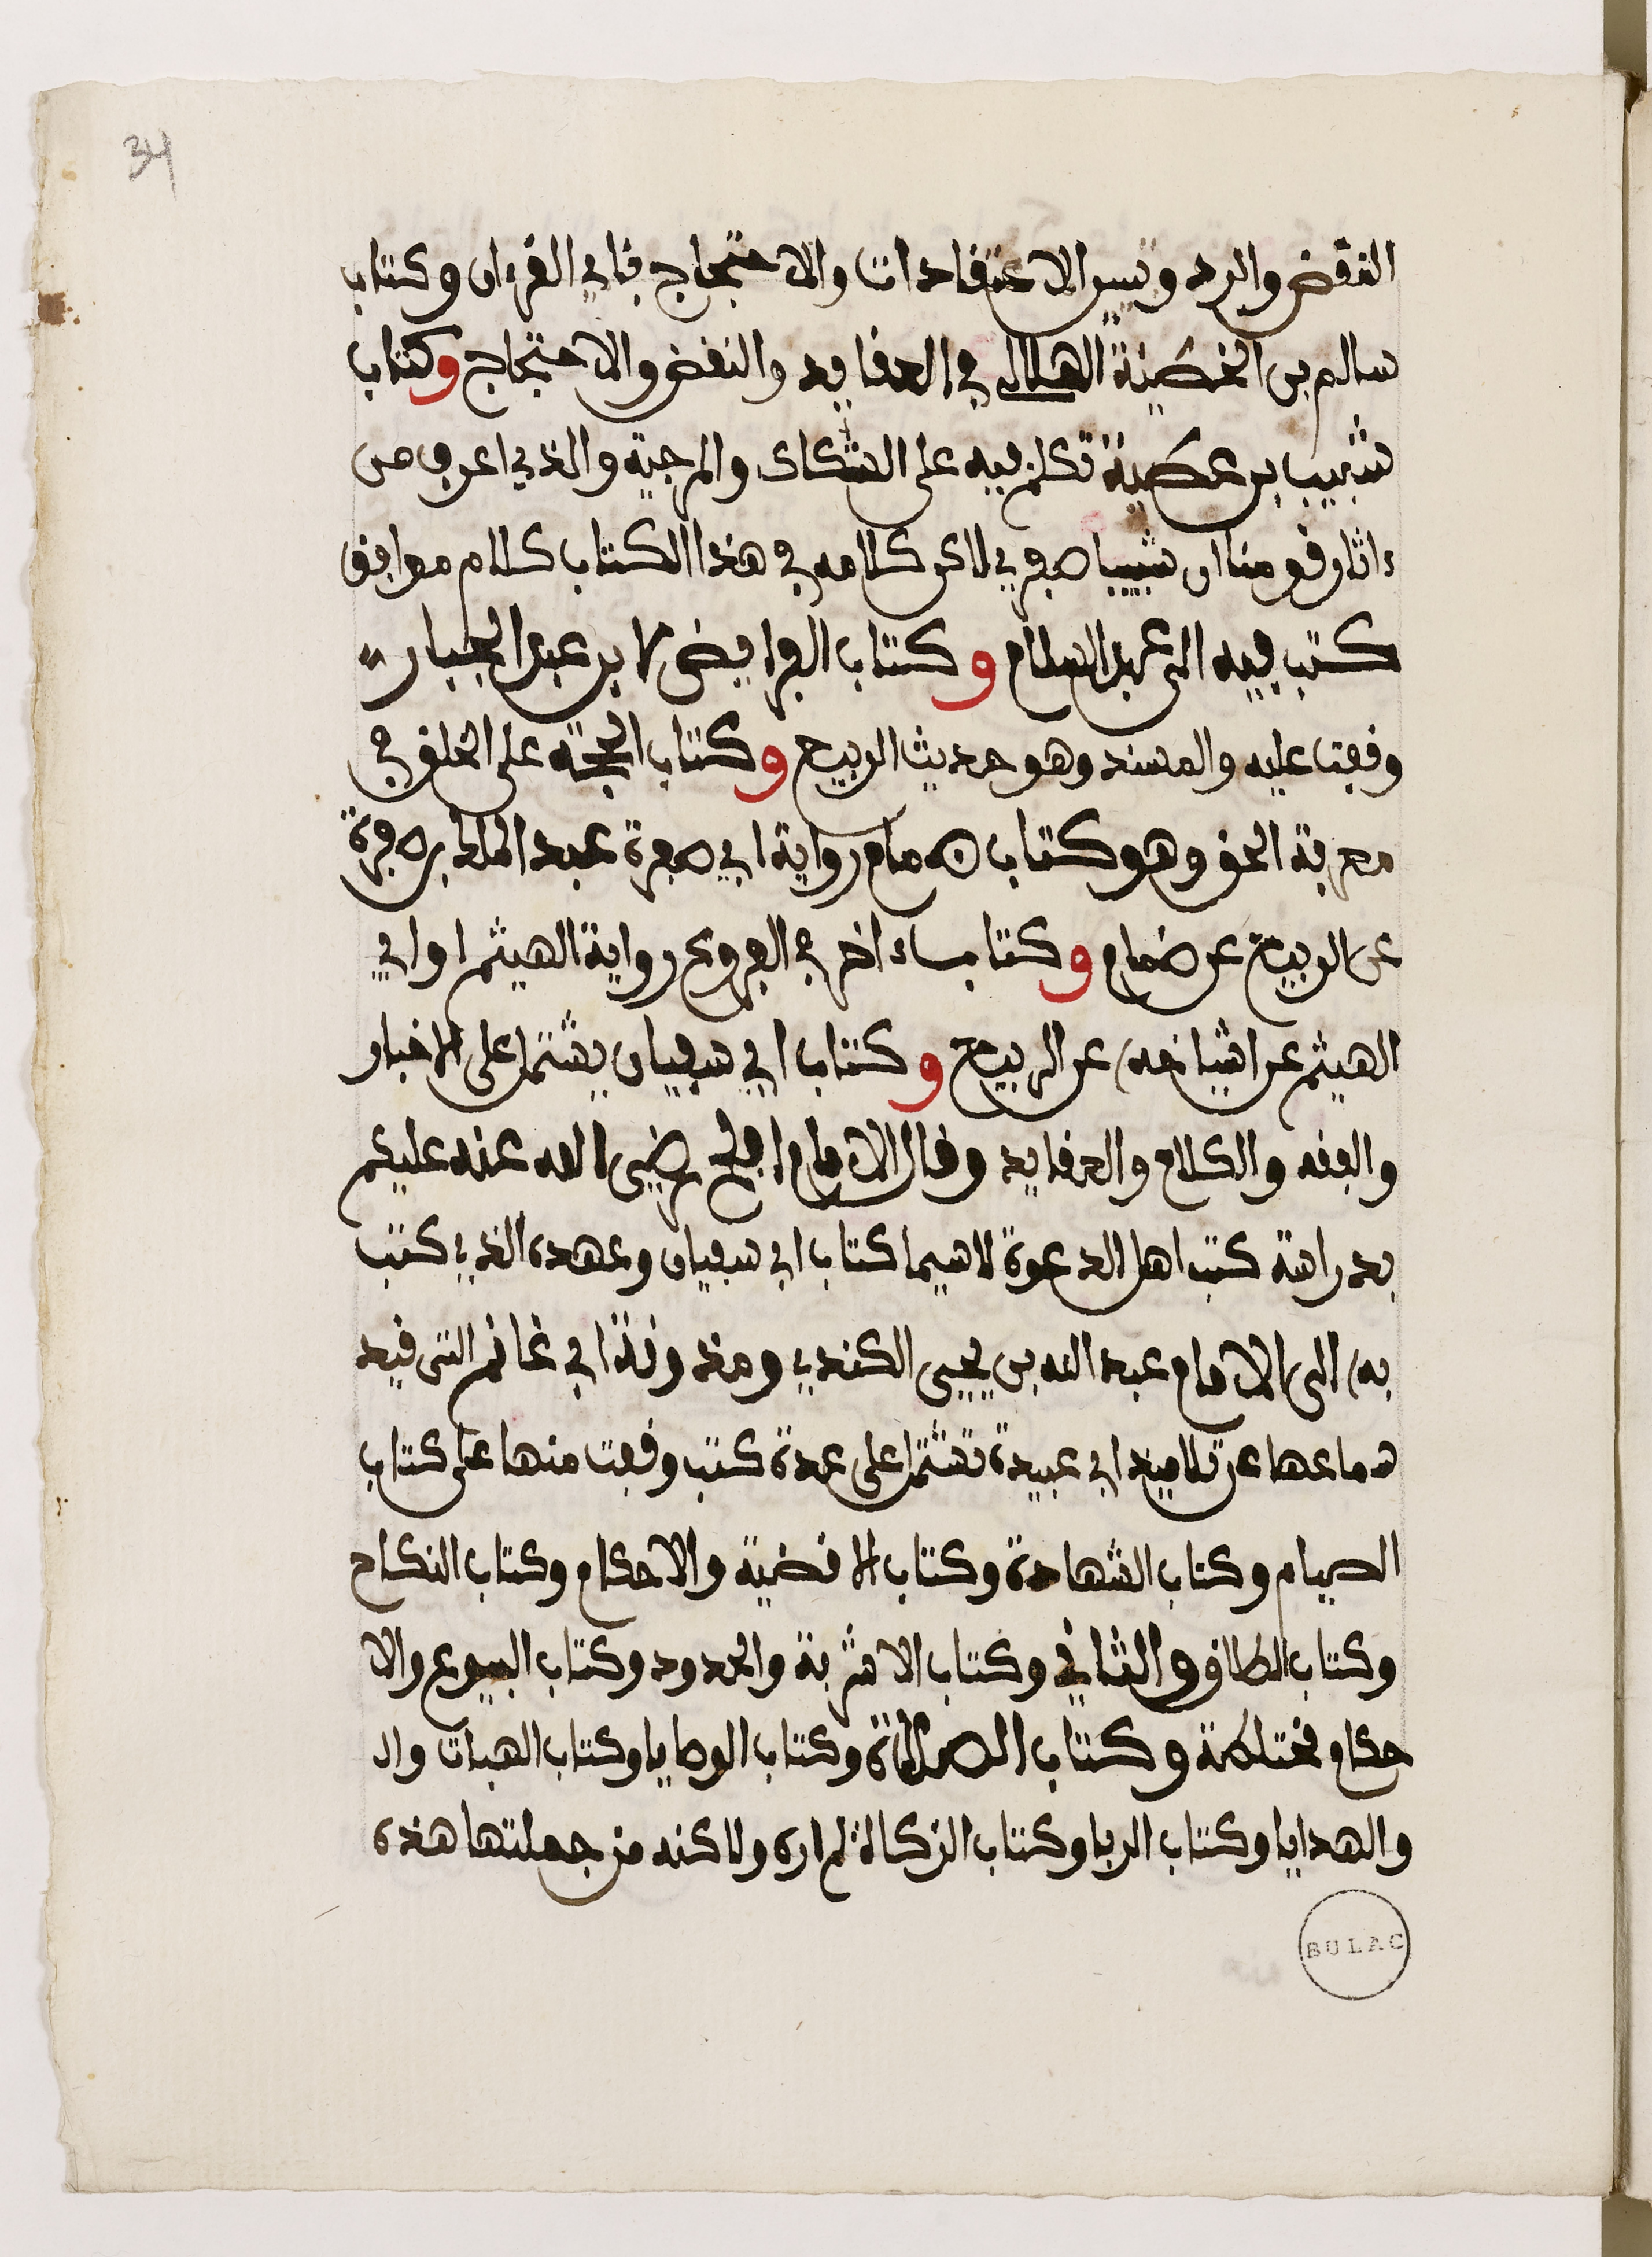 34
النقض والرد وتبين الاعتقادات والاحتجاج بئاي القرءان وكتاب
سالم بن الحطيئة الهلالي في العقايد والنقض والاحتجاج وكتاب
شبيب بن عطية تكلم فيه على الشكاك والمرجية والذي اعرف من
ءاثار قومنا ان شبيبا صفري لاكن كلامه في هذا الكتاب كلام موافق
كتب فيه الى عبد السلام وكتاب الفرايض لابن عبد الجبار
وقفت عليه والمسند وهو حديث الربيع وكتاب الحجة على الخلق في
معرفة الحق وهو كتاب ضمام رواية ابي صفرة عبد الملك بن صفرة
عن الربيع عن ضمام وكتاب ءاخر في الفروع رواية الهيثم او ابي
الهيثم عن اشياخه عن الربيع وكتاب ابي سفيان يشتمل على الاخبار
والفقه والكلام والعقايد وقال الامام افلح رضي الله عنه عليكم
بدراسة كتب اهل الدعوة لاسيما كتاب ابي سفيان وعهده الذي كتب
به الى الامام عبد الله بن يحيى الكندي ومدونة ابي غانم التى قيد
سماعها عن تلاميذ ابي عبيدة تشتمل على عدة كتب وقفت منها على كتاب
الصيام وكتاب الشهادة وكتاب الاقضية والاحكام وكتاب النكاح
وكتاب الطلاق والثاني وكتاب الاشربة والحدود وكتاب البيوع والا
حكام مختلطة وكتاب الصلاة وكتاب الوصايا وكتاب الهبات وال
والهدايا وكتاب الربا وكتاب الزكاة لم اره ولاكنه من جملتها هذه
BULAC